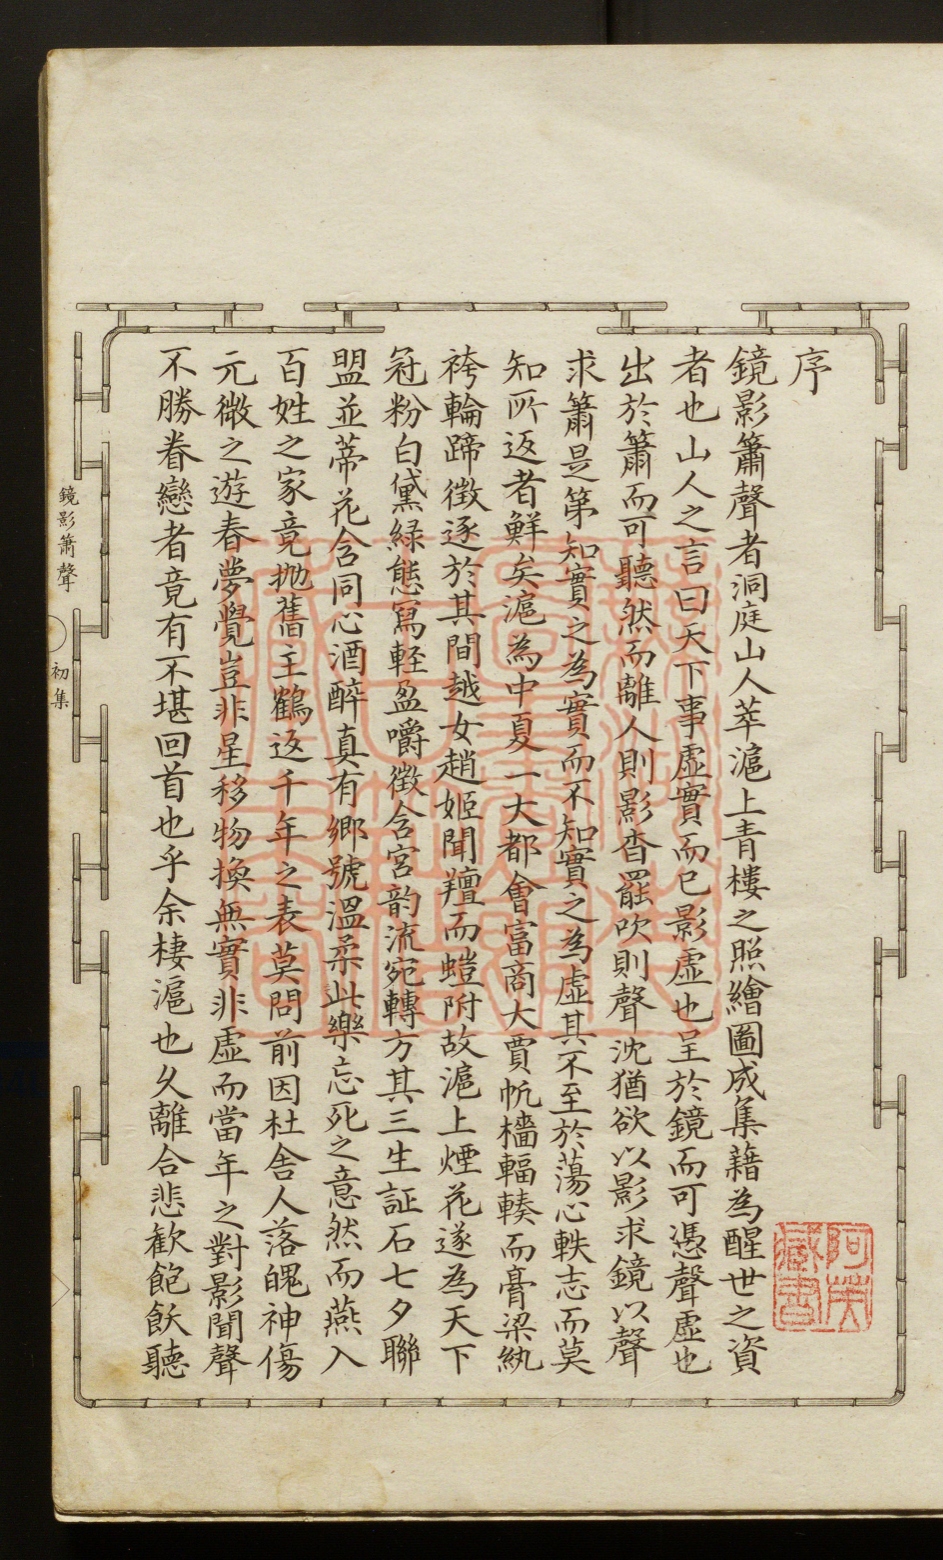 序
鏡影簫聲者洞庭山人萃滬上青樓之照繪圖成集藉為醒世之資
者也山人之言曰天下事虛實而已影虛也呈於鏡而可憑聲虛也
出於簫而可聽然而離人則影杳罷吹則聲沈猶欲以影求鏡以聲
求簫是第知實之為實而不知實之為虛其不至於蕩心軼志而莫
知所返者鮮矣滬為中夏一大都會富商大賈帆檣輻輳而膏粱紈
袴輪蹄徵逐於其間越女趙姬聞羶而螘附故滬上煙花遂為天下
冠粉白黛綠態寫輕盈嚼徵含宮韵流宛轉方其三生証石七夕聯
盟並蒂花含同心酒醉真有鄉號溫柔此樂忘死之意然而燕入
百姓之家竟拋舊主鶴返千年之表莫問前因杜舍人落魄神傷
元微之遊春夢覺豈非星移物換無實非虛而當年之對影聞聲
不勝眷戀者竟有不堪回首也乎余棲滬也久離合悲歡飽飫聽
鏡影簫聲
初集
藏書